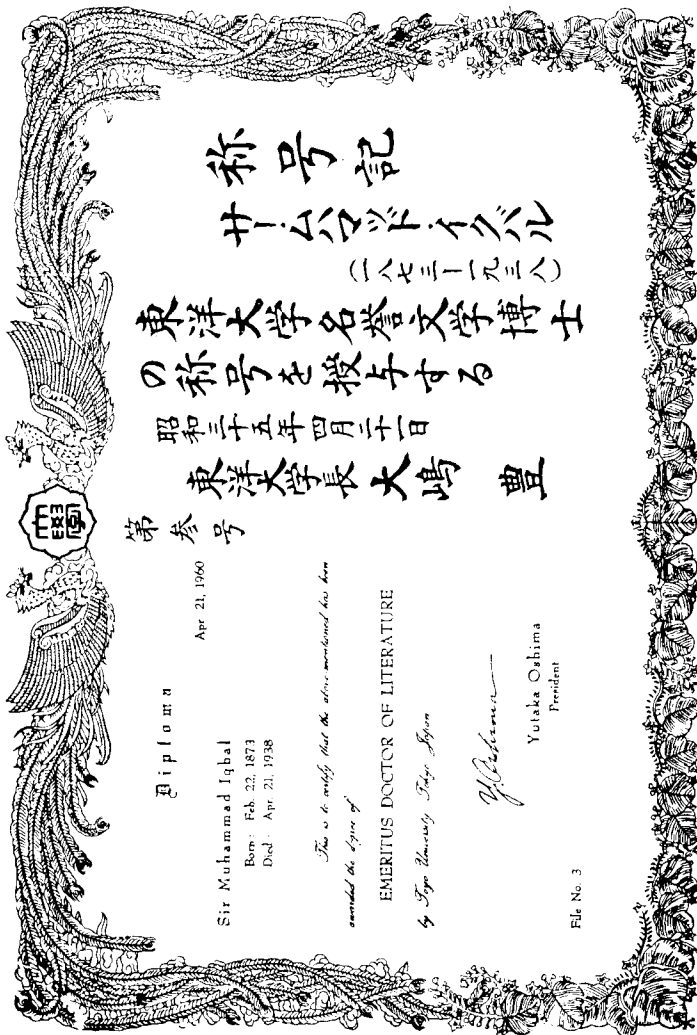 称号記
サームハマッド・イクバル
(一八七三ー一九三八)
東洋大学名誉文学博士
の称号を授与する
昭和三十五年四月二十一日
東洋大学長 大嶋 豊
第参号
Apr 21, 1960
Diploma
Sir Muhammad Iqbal
Born: Feb. 22, 1873
Died: Apr. 21, 1938
This is to certify that the above mentioned has been
awarded the degree of
EMERITUS DOCTOR OF LITERATURE
by Toyo University, Tokyo Japan
Y. Oshima
Yutaka Oshima
President
File No. 3